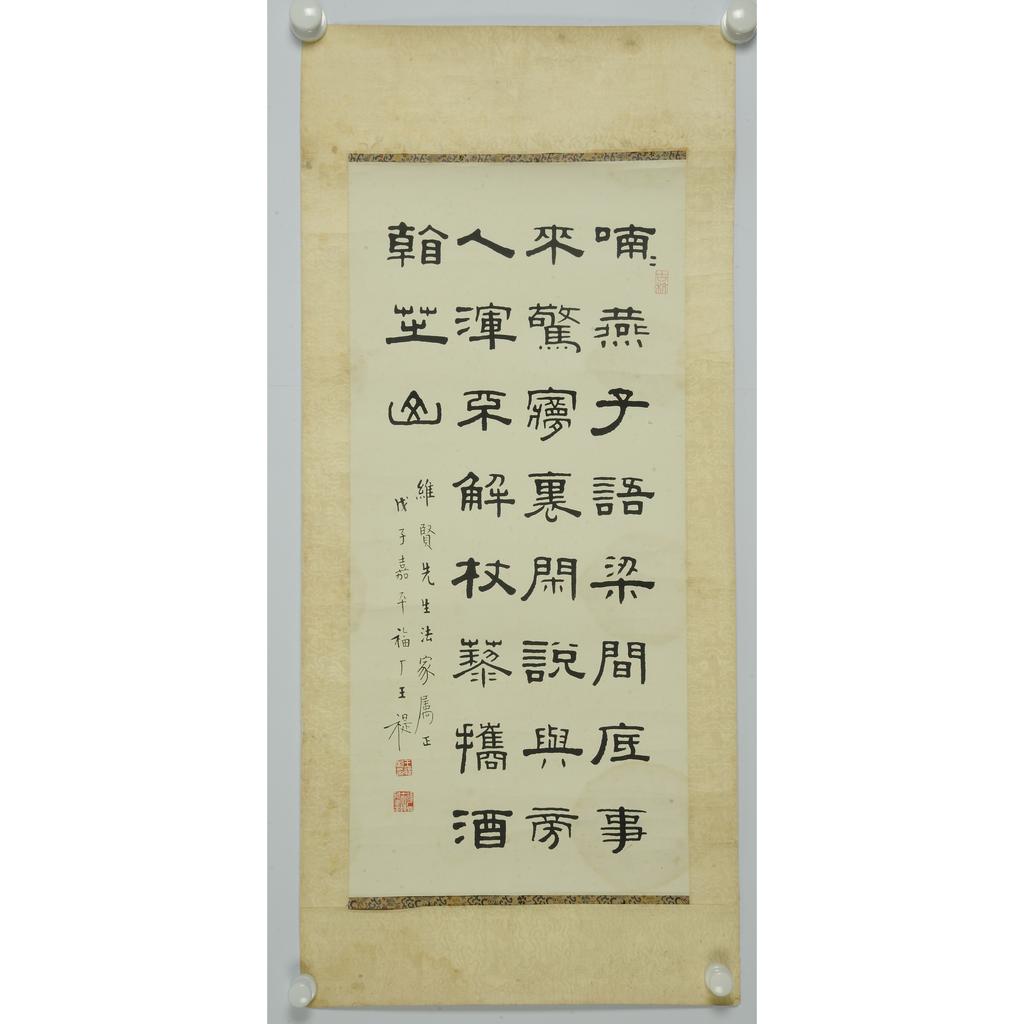 喃〻燕子語梁間底事
來驚夢裏閑說與旁
人渾不解杖藜攜酒
看芝山
維賢先生法家属正
戊子嘉平福厂王禔